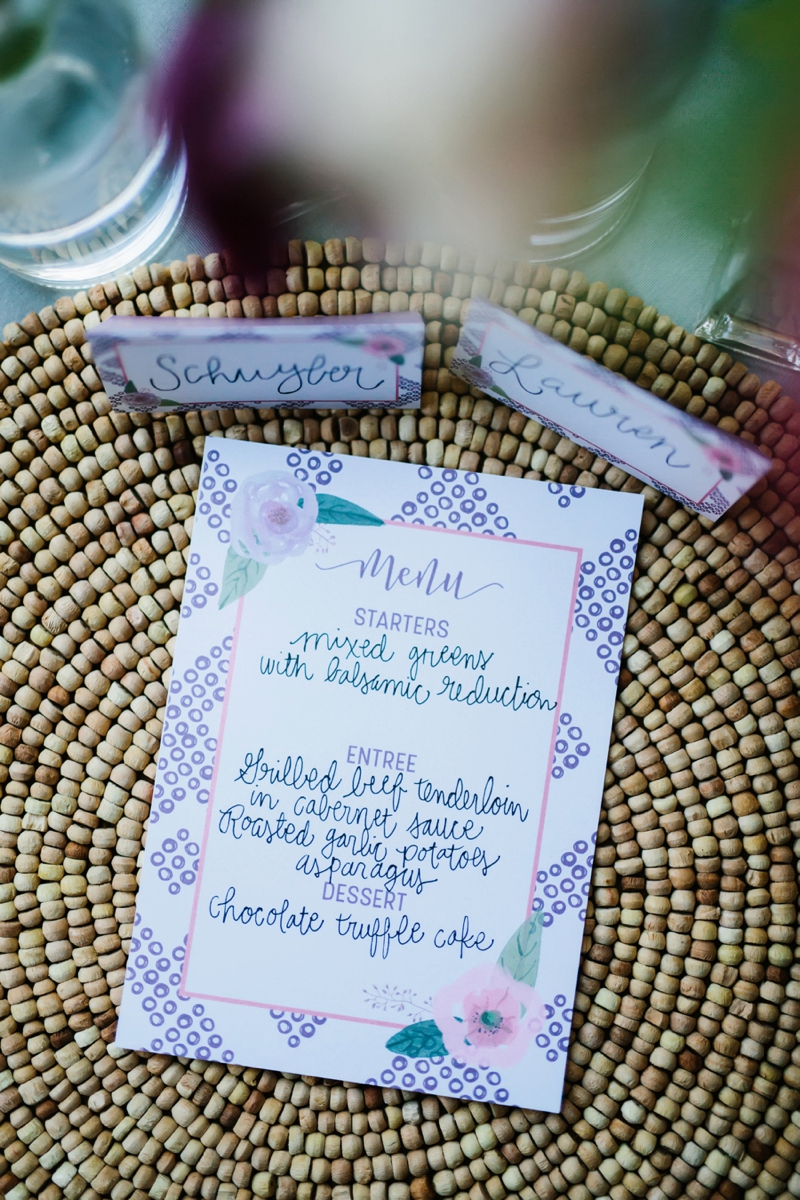 Schuyler
Lauren
Menu
STARTERS
mixed greens
with balsamic reduction
ENTREE
Grilled beef tenderloin
in cabernet sauce
Roasted garlic potatoes
asparagus
DESSERT
Chocolate truffle cake